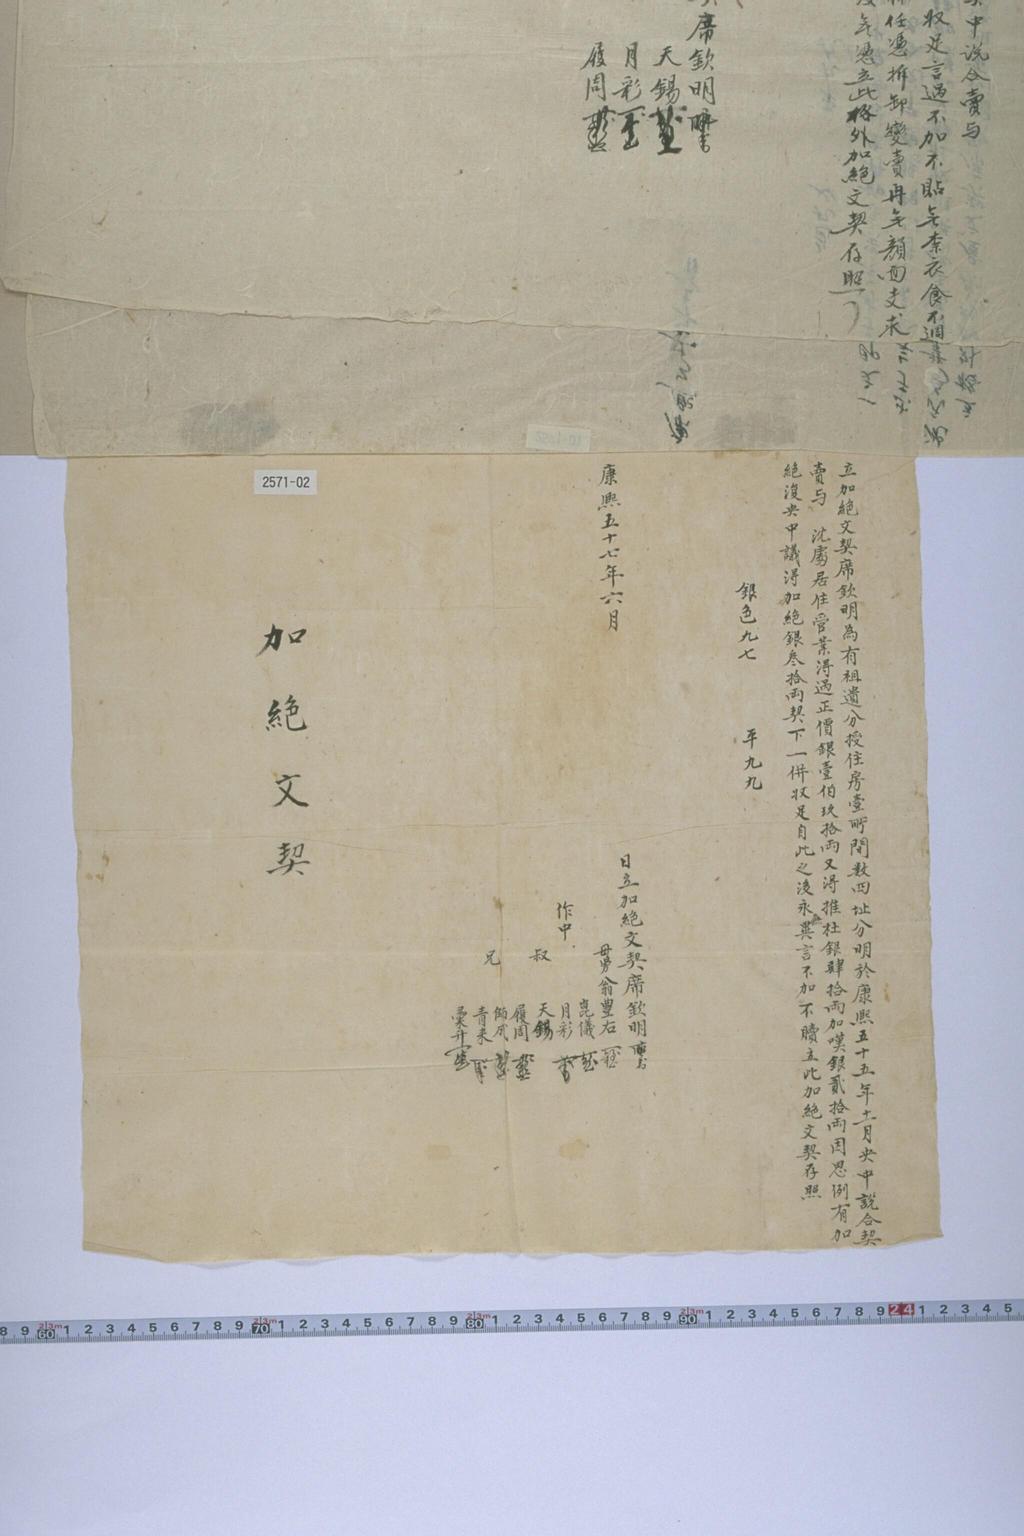 中説合賣与
収足言過不加不貼無柰衣食不週
任憑拆卸變賣再無顔面支求
無憑立此格外加絶文契存照
席欽明
天錫
月彩
履周
立加絶文契席欽明為有祖遺分授住房壹所間数四址分明於康熙五十五年十一月央中説合契
賣与 沈處居住管業得過正價銀壹伯玖拾両又得推杜銀肆拾両加嘆銀貳拾両因思例有加
絶復央中議得加絶銀叁拾両契下一併収足自此之後永無異言不加不贖立此加絶文契存照
銀色九七 平九九
康熙五十七年六月 日立加絶文契席欽明
母舅翁豊右
崑儀
作中
月彩
叔 天錫
履周
兄
青来
2571-02
加絶文契